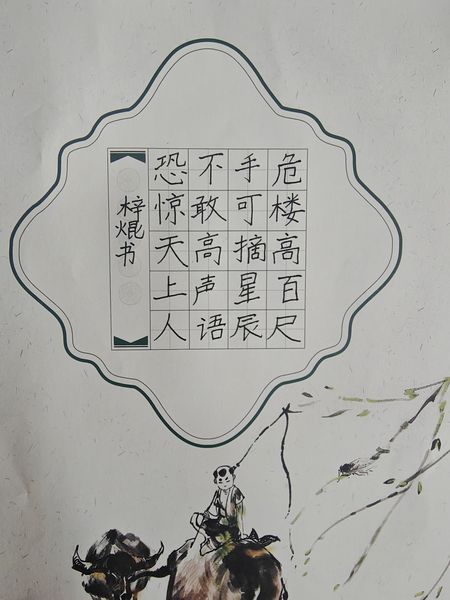 危楼高百尺
手可摘星辰
不敢高声语
恐惊天上人
梓焜书